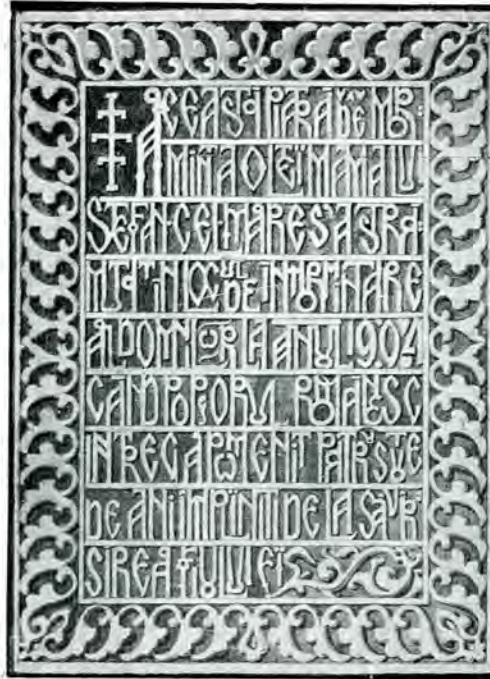 ACEASTĂ PIATRĂ DE MOR
MÎNT A OLTEI MAMA LUI
ȘTEFAN CEL MARE S'A STRĂ
MUTAT IN LOCUL DE INMORMINTARE
A DOMNILOR LA ANUL 1904
CAND POPORUL ROMANESC
INTREG A POMENIT PATRU SUTE
DE ANI IMPLINITI DE LA SAVIR
SIREA FIULUI EI